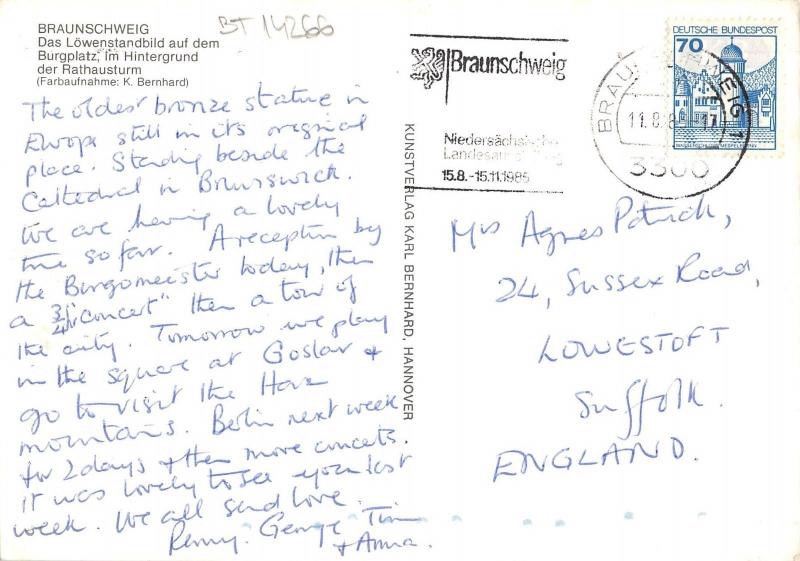 BRAUNSCHWEIG
Das Löwenstandbild auf dem
Burgplatz, im Hintergrund
der Rathausturm
(Farbaufnahme: K. Bernhard)
BT 14266
The oldest bronze statue in
Europe still in its original
place. Standing beside the
Cathedral in Brunswick.
We are having a lovely
time so far. A reception by
the Burgomeister today, then
a 3/4 hr "concert" then a tour of
the city. Tomorrow we play
in the square at Goslar &
go to visit the Harz
mountains. Berlin next week
for 2 days & then more concerts.
It was lovely to see you last
week. We all send love.
Penny. George Tim
& Anna.
KUNSTVERLAG KARL BERNHARD, HANNOVER
Braunschweig
Niedersächsische
15.8.-15.11.1985
BRAUNSCHWEIG 1
11.8.85-17
3300
DEUTSCHE BUNDESPOST
70
Mrs Agnes Patrick,
24, Sussex Road,
LOWESTOFT
Suffolk.
ENGLAND.